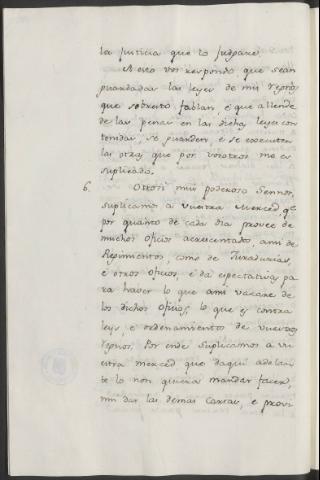 la Justicia que lo Judgare.
A esto vos respondo que sean
guardadas las leyes de mis regnos
que sobresto fablan, e que allende
de las penas en las dichas leyes con
tenidas, se guarden e se executen
las otras que por vosotros me es
suplicado.
6. Otrosi mui poderoso Sennor,
suplicamos a vuestra Merced qe
por quanto de cada dia provee de
muchos oficios acrescentados, ansi de
Regimientos, como de Juradurias,
e otros oficios, e da espectativas pa
ra haver lo que ansi vacare de
los dichos oficios, lo que es contra
leys, e ordenamientos de vuestros
regnos. Por ende suplicamos a vu
estra merced que daqui adelan
te lo non quiera mandar facer,
nin dar las demas Cartas, e provi